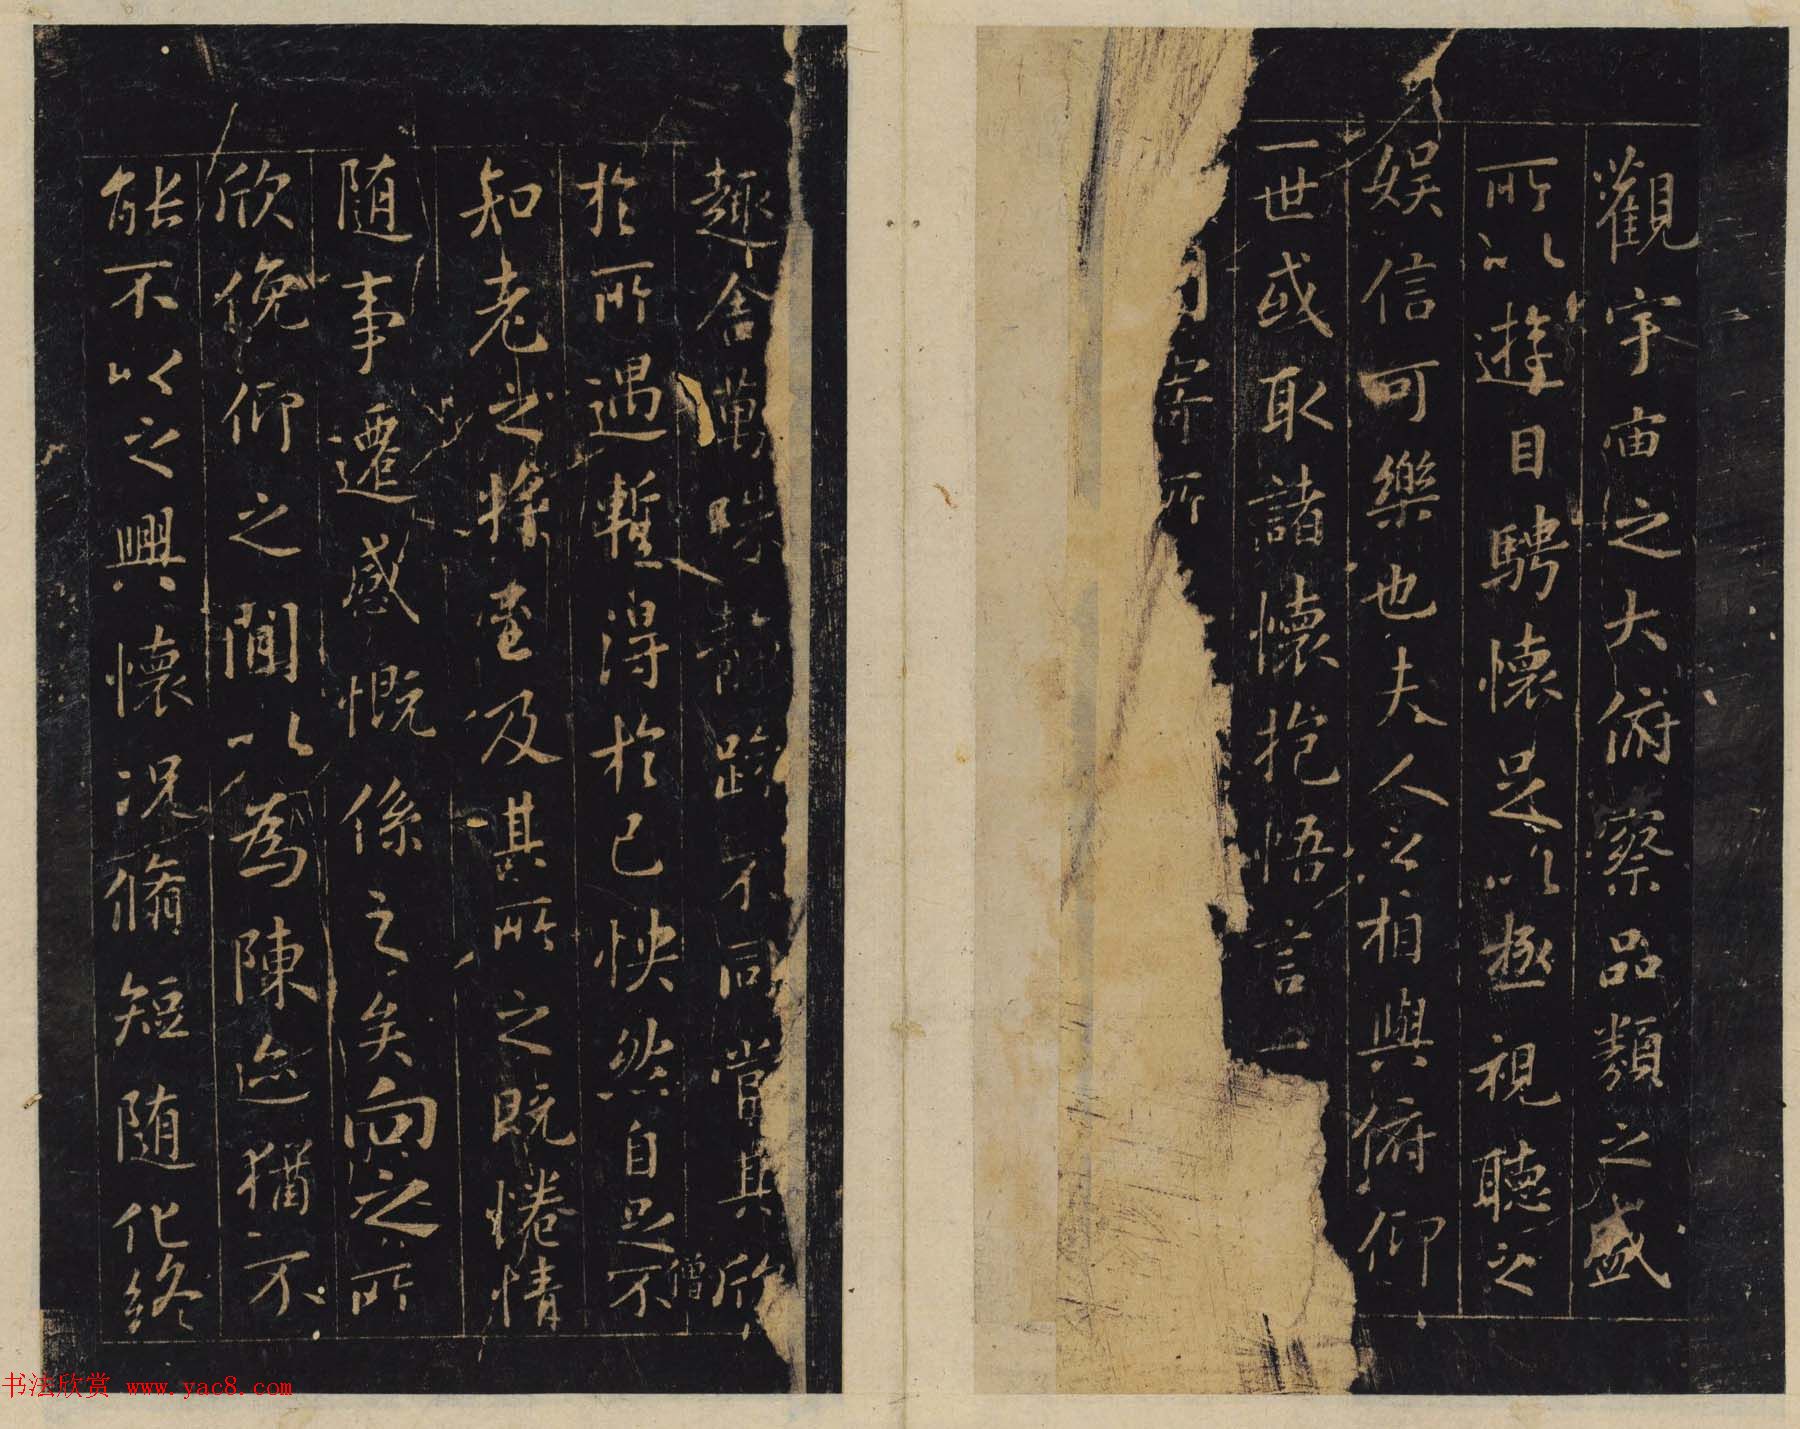 觀宇宙之大俯察品類之盛
所以遊目騁懷足以極視聽之
娛信可樂也夫人之相與俯仰
一世或取諸懷抱悟言一
寄所
趣舍萬殊靜躁不同當其欣
於所遇暫得於己怏然自足不
僧
知老之將至及其所之既惓情
随事遷感慨係之矣向之所
欣俛仰之閒以為陳迹猶不
能不以之興懷況脩短随化終
书法欣赏 www.yac8.com